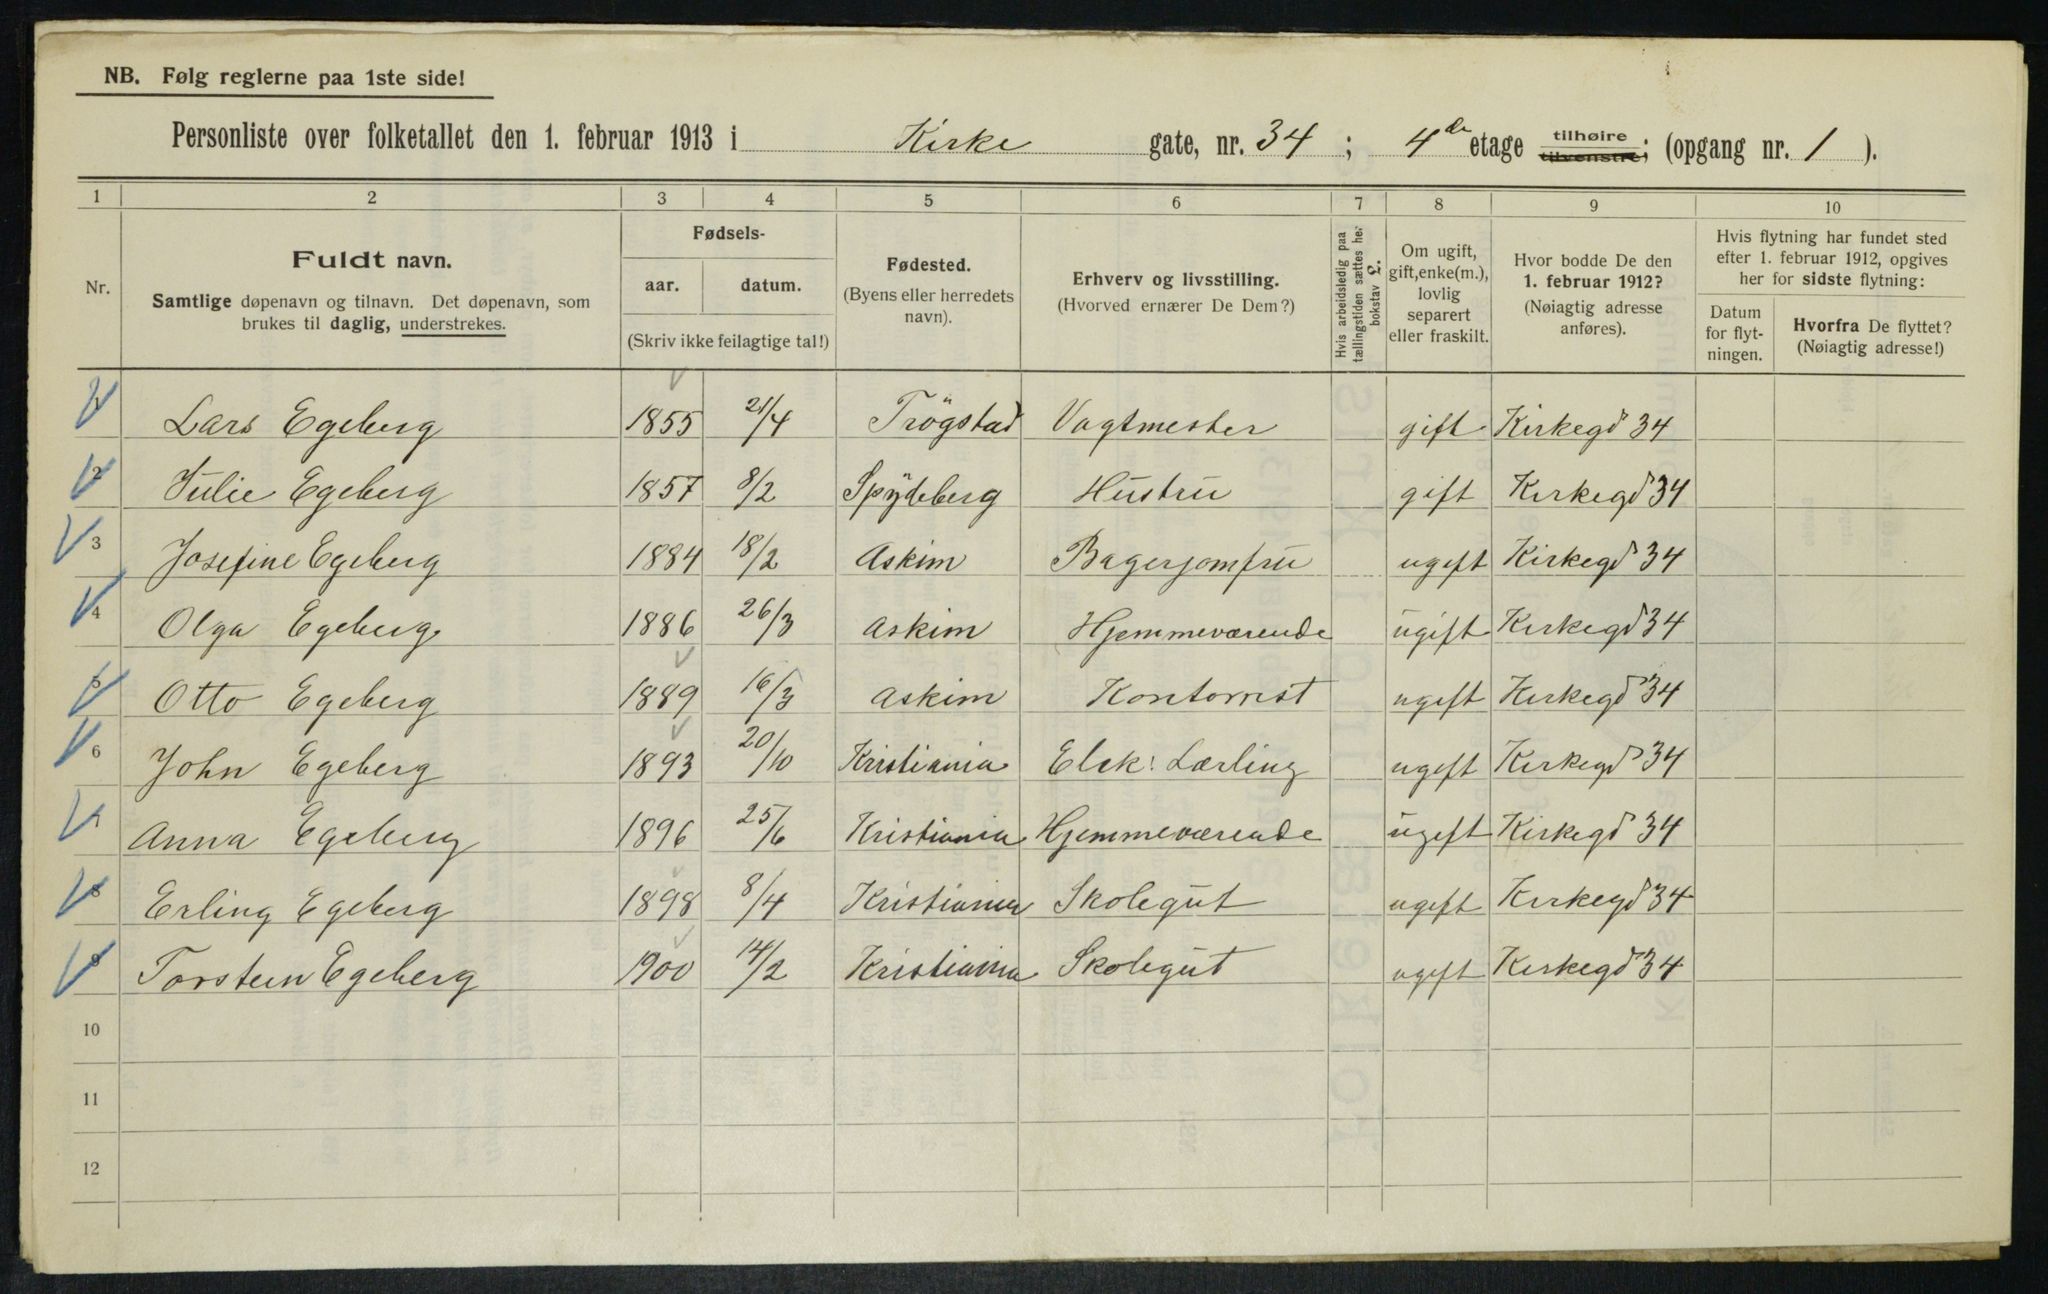 NB. Følg reglerne paa 1ste side!
Personliste over folketallet den 1. februar 1913 i Kirke gate, nr. 34 ; 4de etage tilhøire tilvenstre; (opgang nr. 1 ).
1 2 3 4 5 6 7 8 9 10
Nr.
Fuldt navn.
Samtlige døpenavn og tilnavn. Det døpenavn, som
brukes til daglig, understrekes.
Fødsels-
aar. datum.
(Skriv ikke feilagtige tal!)
Fødested.
(Byens eller herredets
navn).
Erhverv og livsstilling.
(Hvorved ernærer De Dem?)
Hvis arbeidsledig paa
tællingstiden sættes her
bokstav L.
Om ugift,
gift, enke(m.),
lovlig
separert
eller fraskilt.
Hvor bodde De den
1. februar 1912?
(Nøiagtig adresse
anføres).
Hvis flytning har fundet sted
efter 1. februar 1912, opgives
her for sidste flytning:
Datum
for flyt-
ningen.
Hvorfra De flyttet?
(Nøiagtig adresse!)
1 Lars Egeberg 1855 21/4 Trögstad Vagtmester gift Kirkegd 34
2 Julie Egeberg 1857 8/2 Spydeberg Hustru gift Kirkegd 34
3 Josefine Egeberg 1884 18/2 Askim Bagerjomfru ugift Kirkegd 34
4 Olga Egeberg 1886 26/3 Askim Hjemmeværende ugift Kirkegd 34
5 Otto Egeberg 1889 16/3 Askim Kontorist ugift Kirkegd 34
6 John Egeberg 1893 20/10 Kristiania Elek: Lærling ugift Kirkegd 34
7 Anna Egeberg 1896 25/6 Kristiania Hjemmeværende ugift Kirkegd 34
8 Erling Egeberg 1898 8/4 Kristiania Skolegut ugift Kirkegd 34
9 Torstein Egeberg 1900 14/2 Kristiania Skolegut ugift Kirkegd 34
10
11
12